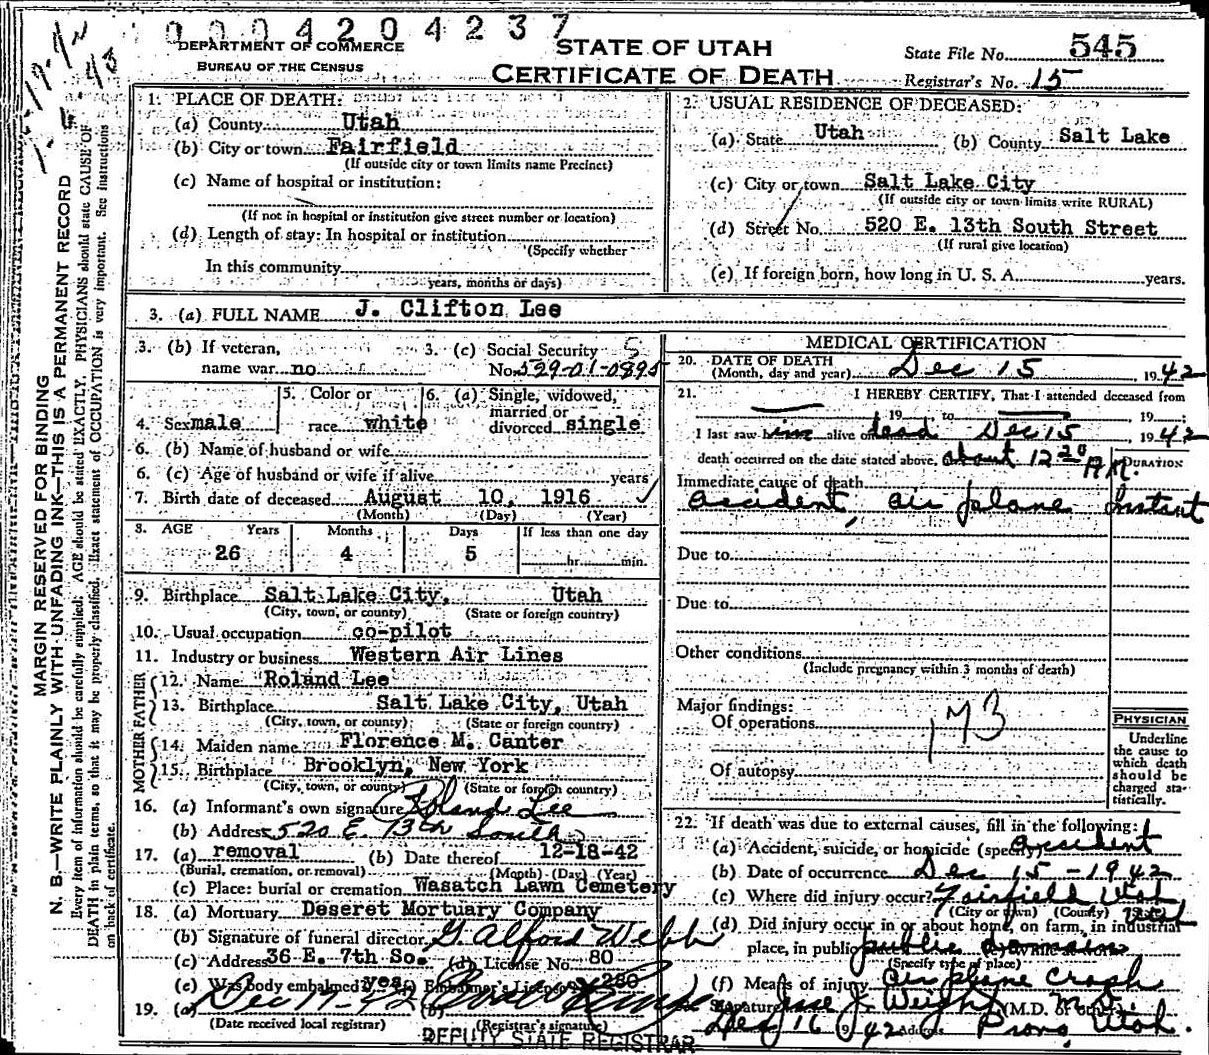 0004204237
DEPARTMENT OF COMMERCE
BUREAU OF THE CENSUS
STATE OF UTAH
CERTIFICATE OF DEATH
State File No. 545
Registrar's No. 15
MARGIN RESERVED FOR BINDING
N. B.—WRITE PLAINLY WITH UNFADING INK—THIS IS A PERMANENT RECORD
Every item of information should be carefully supplied. AGE should be stated EXACTLY. PHYSICIANS should state CAUSE OF
DEATH in plain terms, so that it may be properly classified. Exact statement of OCCUPATION is very important. See instructions
on back of certificate.
1. PLACE OF DEATH:
(a) County Utah
(b) City or town Fairfield
(If outside city or town limits name Precinct)
(c) Name of hospital or institution:
(If not in hospital or institution give street number or location)
(d) Length of stay: In hospital or institution
(Specify whether
In this community
years, months or days)
2. USUAL RESIDENCE OF DECEASED:
(a) State Utah (b) County Salt Lake
(c) City or town Salt Lake City
(If outside city or town limits write RURAL)
(d) Street No. 520 E. 13th South Street
(If rural give location)
(e) If foreign born, how long in U. S. A. years.
3. (a) FULL NAME J. Clifton Lee
3. (b) If veteran, name war no
3. (c) Social Security No. 529-01-0895
4. Sex male
5. Color or race white
6. (a) Single, widowed, married or divorced single
6. (b) Name of husband or wife
6. (c) Age of husband or wife if alive years
7. Birth date of deceased August 10, 1916
(Month) (Day) (Year)
8. AGE Years Months Days If less than one day
26 4 5 hr. min.
9. Birthplace Salt Lake City, Utah
(City, town, or county) (State or foreign country)
10. Usual occupation co-pilot
11. Industry or business Western Air Lines
FATHER
12. Name Roland Lee
13. Birthplace Salt Lake City, Utah
(City, town, or county) (State or foreign country)
MOTHER
14. Maiden name Florence M. Canter
15. Birthplace Brooklyn, New York
(City, town, or county) (State or foreign country)
16. (a) Informant's own signature Roland Lee
(b) Address 520 E. 13th South
17. (a) removal (b) Date thereof 12-18-42
(Burial, cremation, or removal) (Month) (Day) (Year)
(c) Place: burial or cremation Wasatch Lawn Cemetery
18. (a) Mortuary Deseret Mortuary Company
(b) Signature of funeral director G. Alford Webb
(c) Address 36 E. 7th So. (d) License No. 80
(e) Was body embalmed? yes (f) Embalmer's License 280
19. (a) Dec 17-42 (b)
(Date received local registrar) (Registrar's signature)
DEPUTY STATE REGISTRAR
MEDICAL CERTIFICATION
20. DATE OF DEATH
(Month, day and year) Dec 15, 1942
21. I HEREBY CERTIFY, That I attended deceased from
19 to 19 ;
I last saw him alive on dead Dec 15, 1942
death occurred on the date stated above, about 12 20 A.M.
DURATION
Immediate cause of death
accident, air plane Instant
Due to
Due to
Other conditions
(Include pregnancy within 3 months of death)
Major findings:
Of operations
173
Of autopsy
PHYSICIAN
Underline
the cause to
which death
should be
charged sta-
tistically.
22. If death was due to external causes, fill in the following:
(a) Accident, suicide, or homicide (specify) accident
(b) Date of occurrence Dec 15 - 1942
(c) Where did injury occur? Fairfield Utah Utah
(City or town) (County) (State)
(d) Did injury occur in or about home, on farm, in industrial
place, in public public domain (e) While at work
(Specify type of place)
(f) Means of injury air plane crash
Signature Jesse J. Weight (M.D. or other) M.D.
Dec 16 1942 Address Provo, Utah.